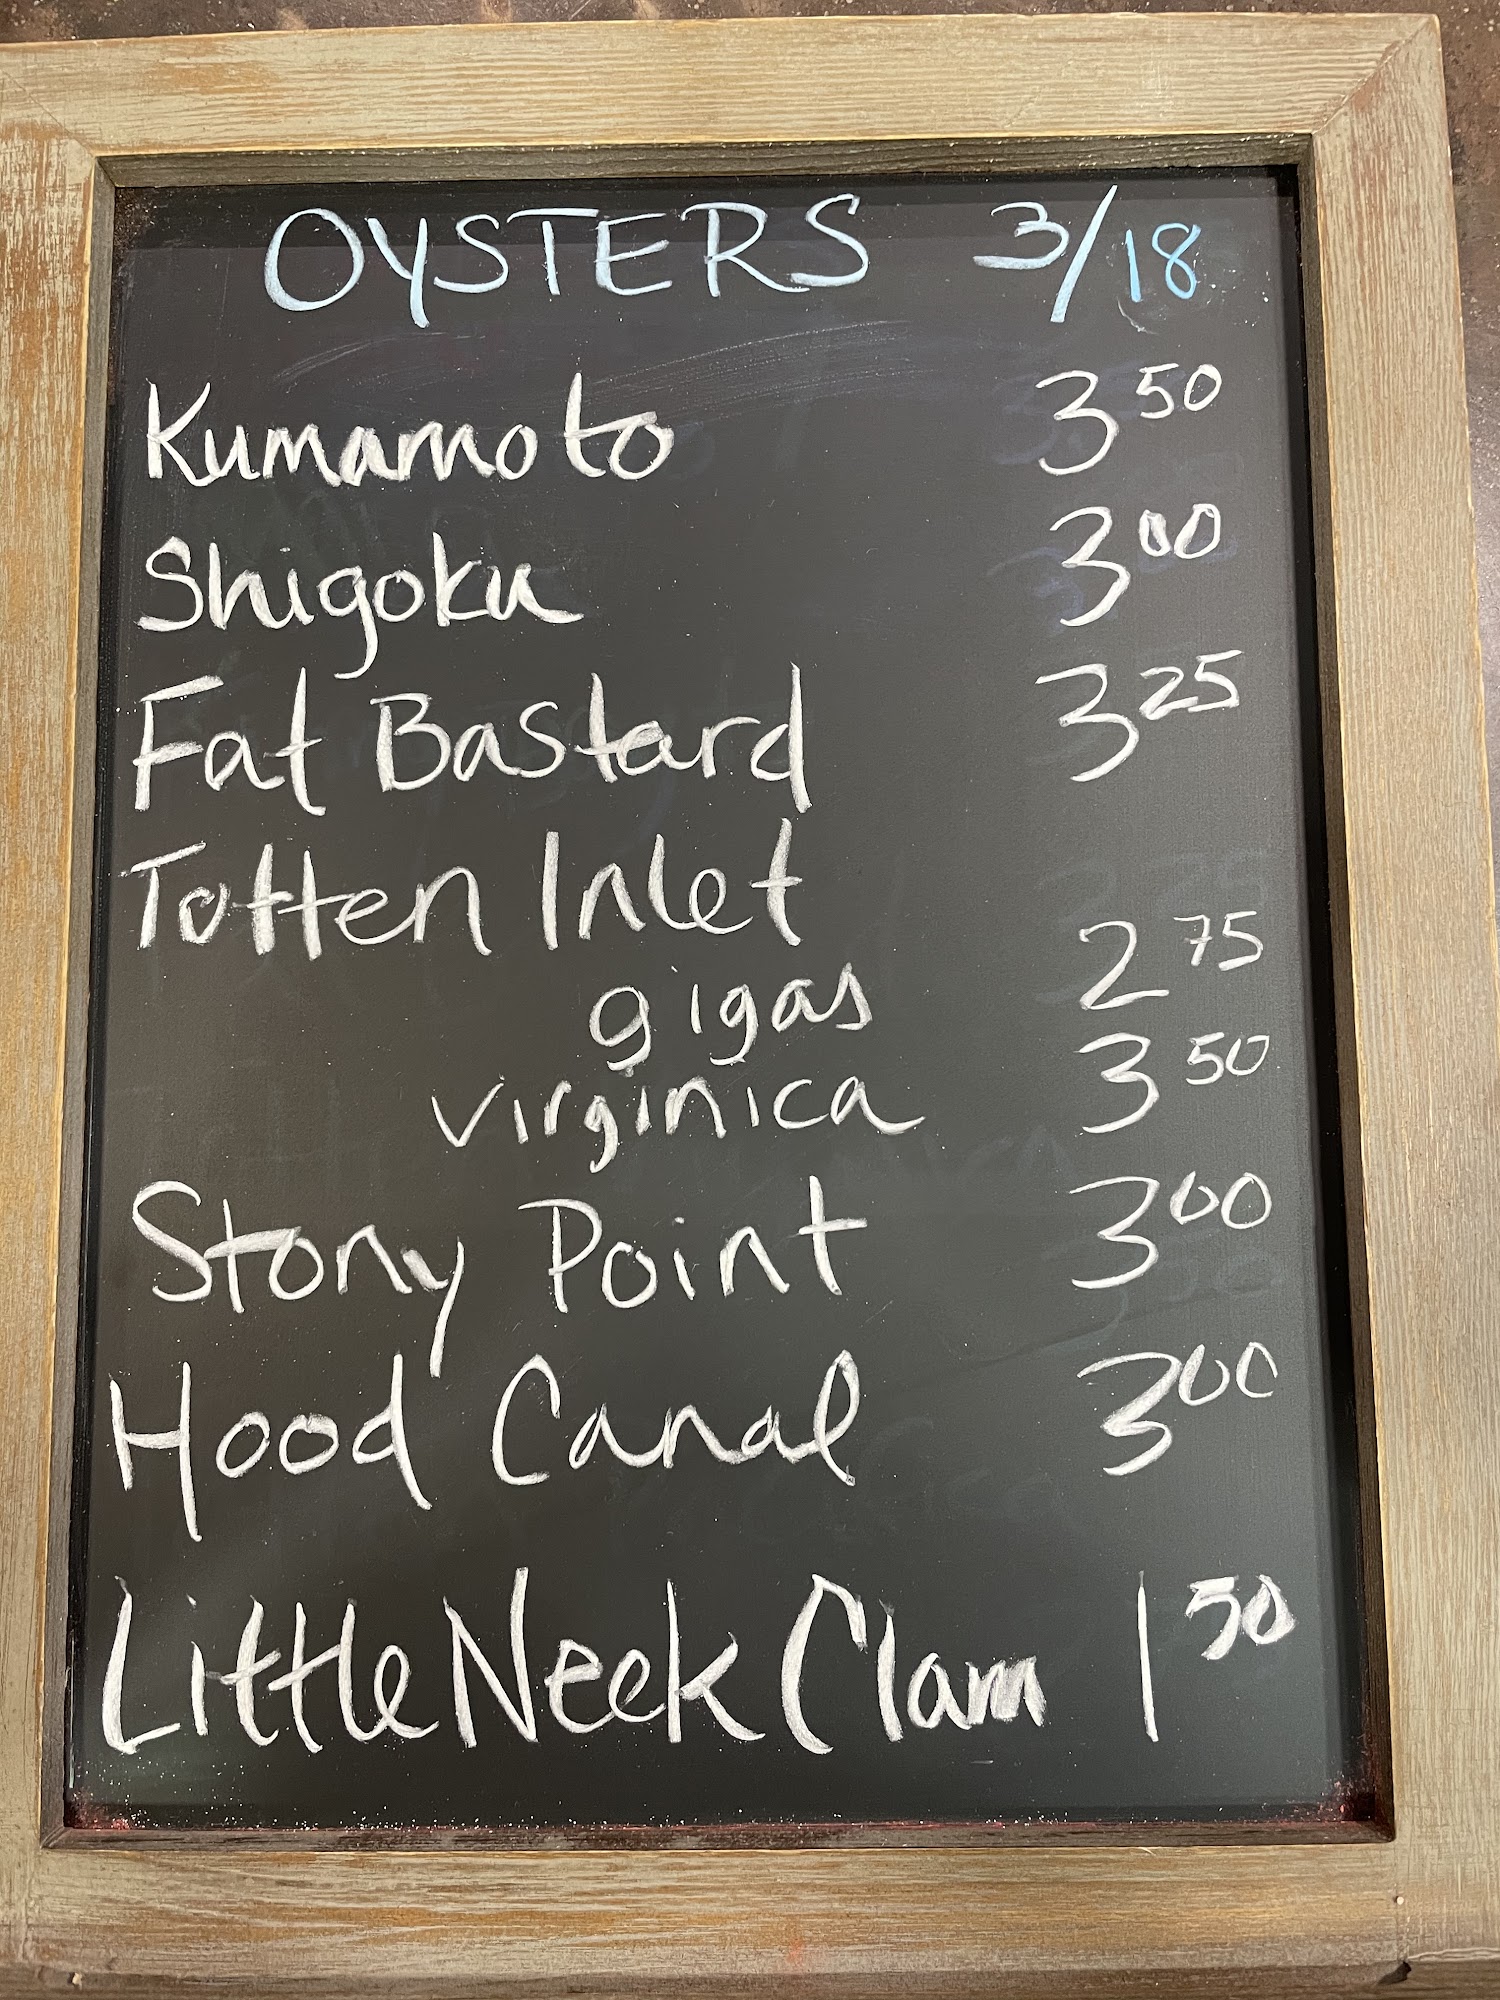 OYSTERS 3/18
Kumamoto 3 50
Shigoku 3 00
Fat Bastard 3 25
Totten Inlet
gigas 2 75
virginica 3 50
Stony Point 3 00
Hood Canal 3 00
Little Neck Clam 1 50